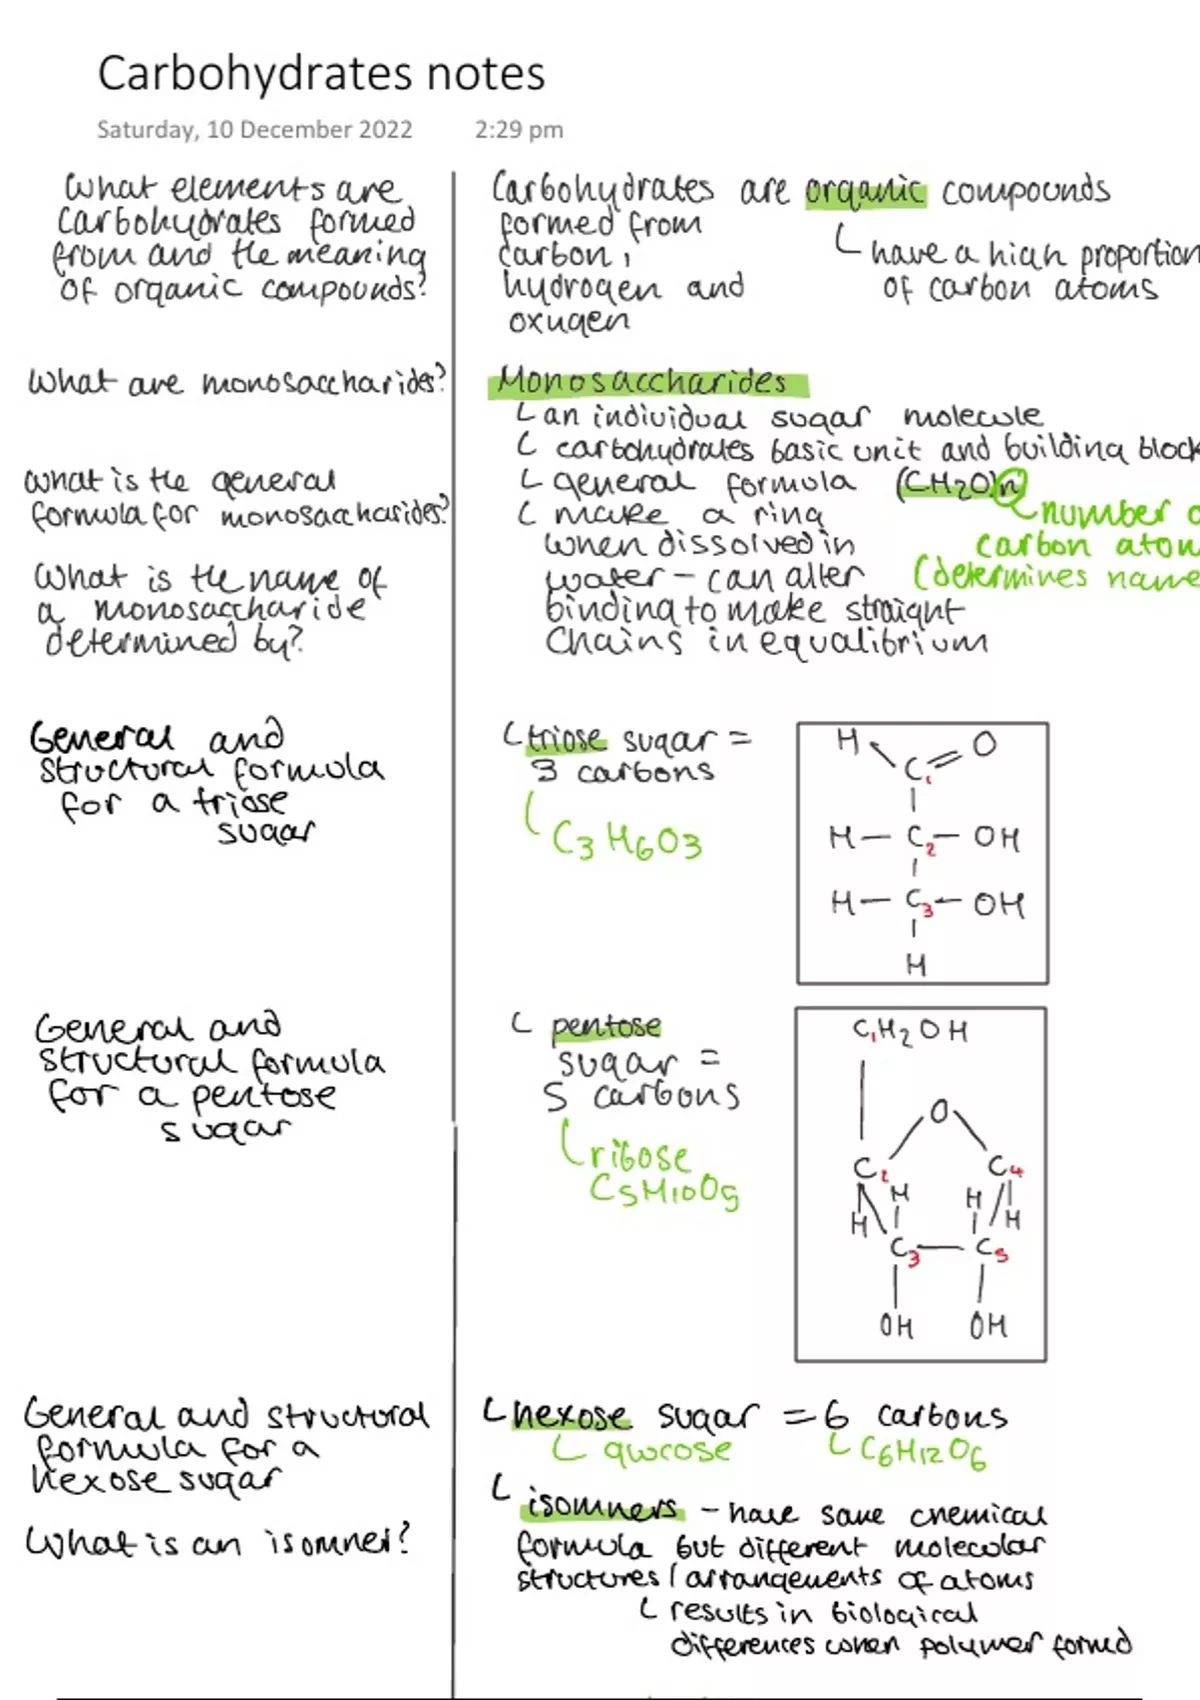 Carbohydrates notes
Saturday, 10 December 2022 2:29 pm
What elements are
carbohydrates formed
from and the meaning
of organic compounds?
Carbohydrates are organic compounds
formed from
carbon,
hydrogen and
oxygen
have a high proportion
of carbon atoms
What are monosaccharides?
Monosaccharides
an individual sugar molecule
carbohydrates basic unit and building block
What is the general
formula for monosaccharides?
general formula (CH2O)n
number o
carbon atom
(determines name
make a ring
when dissolved in
water - can alter
binding to make straight
chains in equalibrium
What is the name of
a monosaccharide
determined by?
General and
structural formula
for a triose
sugar
triose sugar =
3 carbons
C3H6O3
H O
C1
H - C2 - OH
H - C3 - OH
H
General and
structural formula
for a pentose
sugar
pentose
sugar =
5 carbons
ribose
C5H10O5
C1H2OH
O
C2 C4
H H
H H
C3 C5
OH OH
General and structural
formula for a
hexose sugar
hexose sugar = 6 carbons
glucose C6H12O6
What is an isomner?
isomners - have same chemical
formula but different molecular
structures / arrangements of atoms
results in biological
differences when polymer formed